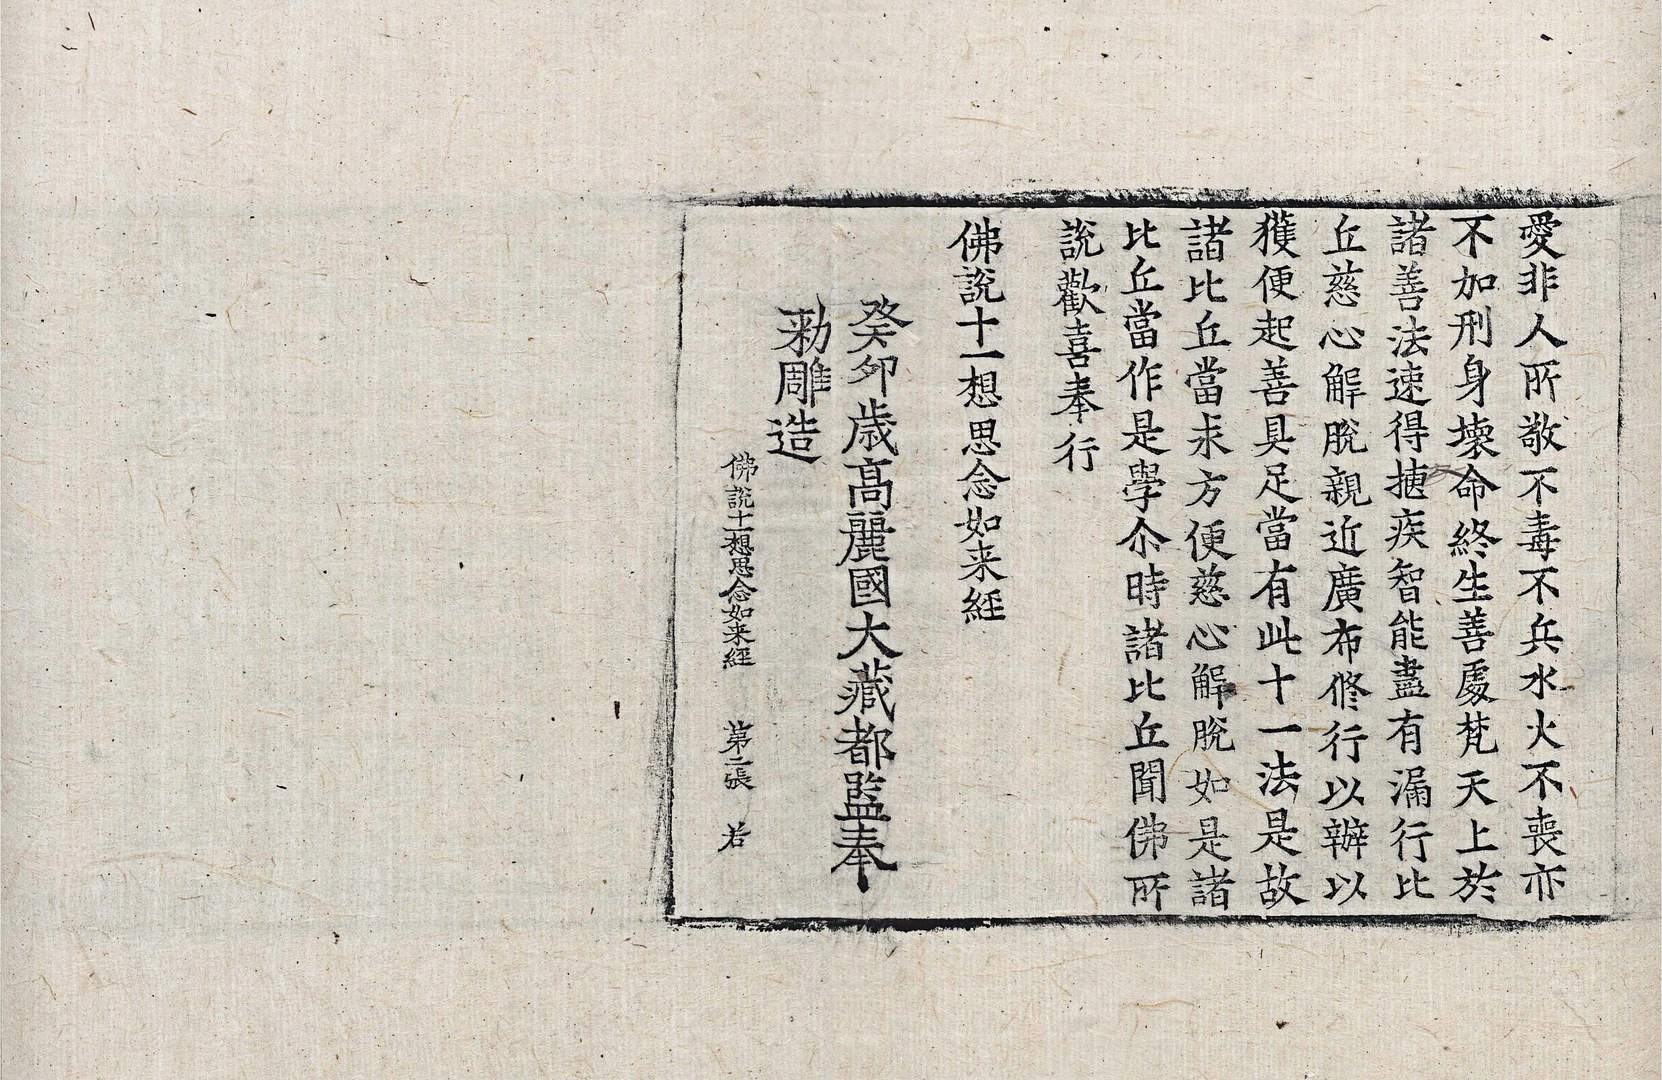 愛非人所敬不毒不兵水火不喪亦
不加刑身壞命終生善處梵天上於
諸善法速得捷疾智能盡有漏行比
丘慈心解脫親近廣布修行以辦以
獲便起善具足當有此十一法是故
諸比丘當求方便慈心解脫如是諸
比丘當作是學尒時諸比丘聞佛所
說歡喜奉行
佛說十一想思念如来經
癸夘歳髙麗國大藏都監奉
勑雕造
佛說十一想思念如来經　第二張　若